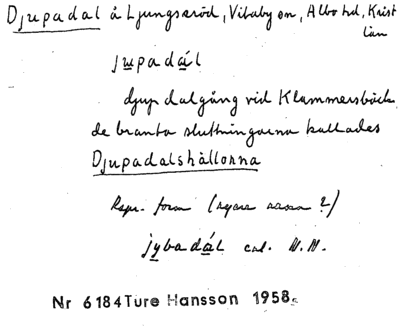 Djupadal å Ljungaröd, Vitaby sn, Albo hd, Krist
län
jupadál
djup dalgång vid Klammersbäck
de branta sluttningarna kallades
Djupadalshällorna
Repr. form (egna ?)
jybadál enl. W.N.
Nr 6184 Ture Hansson 1958.